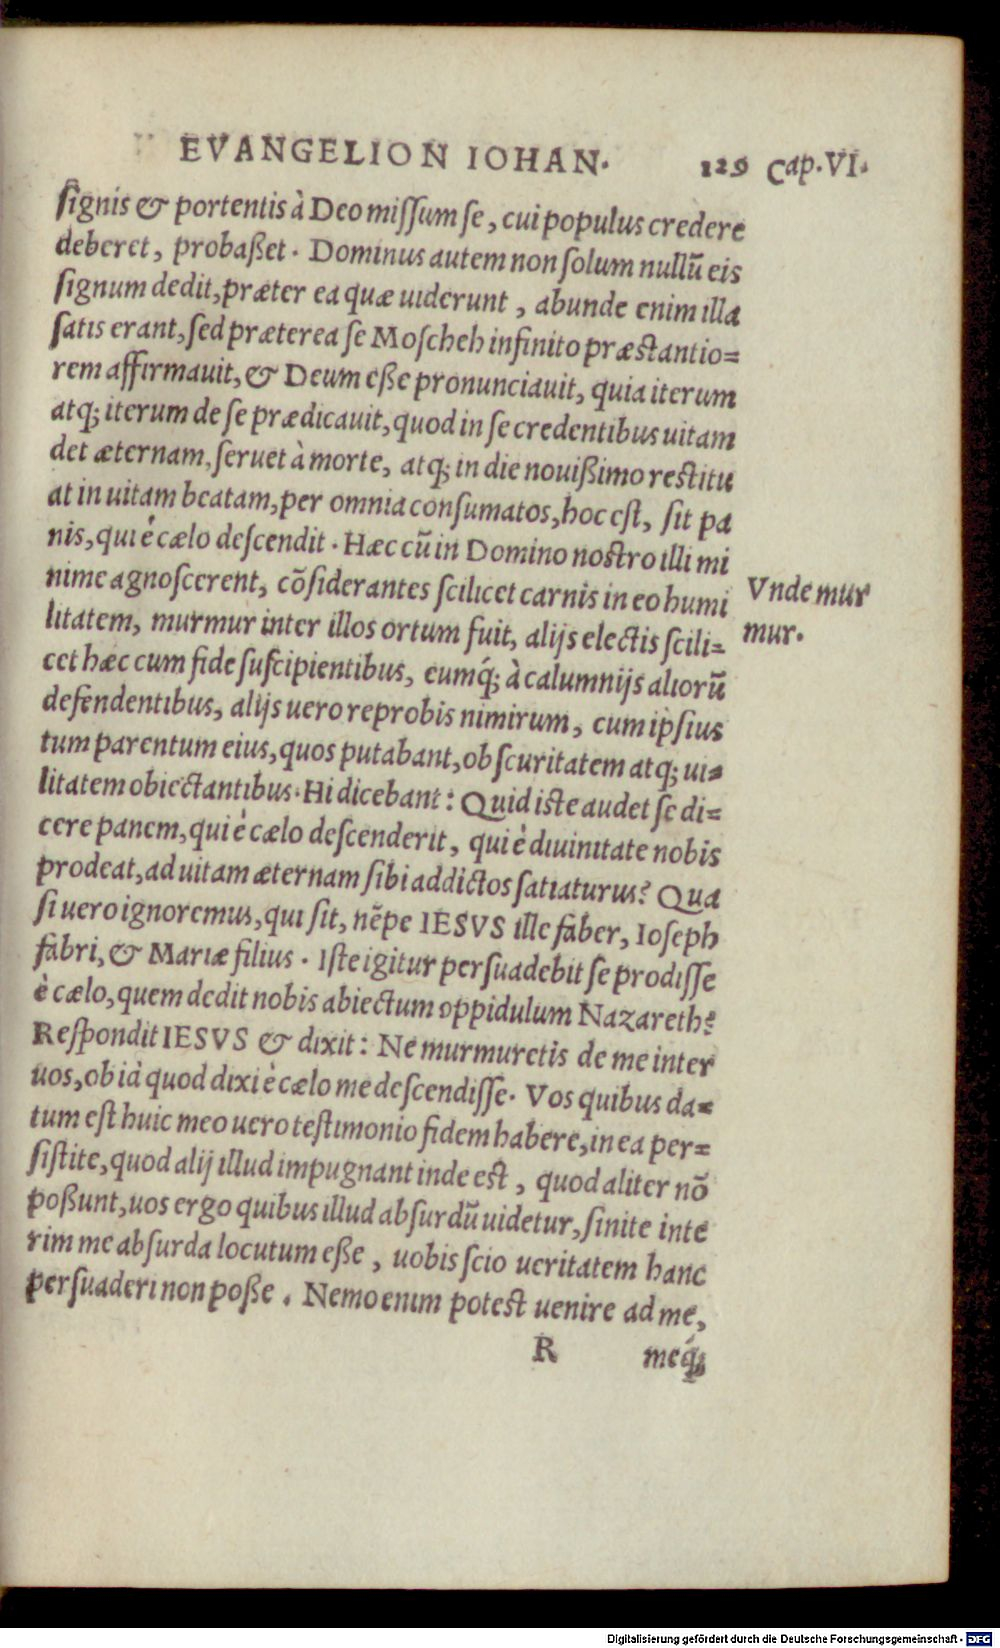 EVANGELION IOHAN. 129 Cap. VI.
ſignis & portentis à Deo miſſum ſe, cui populus credere
deberet, probaßet. Dominus autem non ſolum nullū eis
ſignum dedit, præter ea quæ uiderunt, abunde enim illa
ſatis erant, ſed præterea ſe Moſcheh infinito præstantio=
rem affirmauit, & Deum eße pronunciauit, quia iterum
atq; iterum de ſe prædicauit, quod in ſe credentibus uitam
det æternam, ſeruet à morte, atq; in die nouißimo restitu
at in uitam beatam, per omnia conſumatos, hoc est, ſit pa
nis, qui è cælo deſcendit. Hæc cū in Domino nostro illi mi
nime agnoſcerent, cōſiderantes ſcilicet carnis in eo humi
litatem, murmur inter illos ortum fuit, alijs electis ſcili=
cet hæc cum fide ſuſcipientibus, eumq́; à calumnijs aliorū
defendentibus, alijs uero reprobis nimirum, cum ipſius
tum parentum eius, quos putabant, obſcuritatem atq; ui=
litatem obiectantibus. Hi dicebant: Quid iste audet ſe di=
cere panem, qui è cælo deſcenderit, qui è diuinitate nobis
prodeat, ad uitam æternam ſibi addictos ſatiaturus? Qua
ſi uero ignoremus, qui ſit, nēpe IESVS ille faber, Ioſeph
fabri, & Mariæ filius. Iſte igitur perſuadebit ſe prodiſſe
è cælo, quem dedit nobis abiectum oppidulum Nazareth?
Reſpondit IESVS & dixit: Ne murmuretis de me inter
uos, ob id quod dixi è cælo me deſcendiſſe. Vos quibus da=
tum eſt huic meo uero teſtimonio fidem habere, in ea per=
ſiſtite, quod alij illud impugnant inde est, quod aliter nō
poßunt, uos ergo quibus illud abſurdū uidetur, ſinite inte
rim me abſurda locutum eße, uobis ſcio ueritatem hanc
perſuaderi non poße. Nemo enim potest uenire ad me,
R meq́;
Vnde mur
mur.
Digitalisierung gefördert durch die Deutsche Forschungsgemeinschaft - DFG